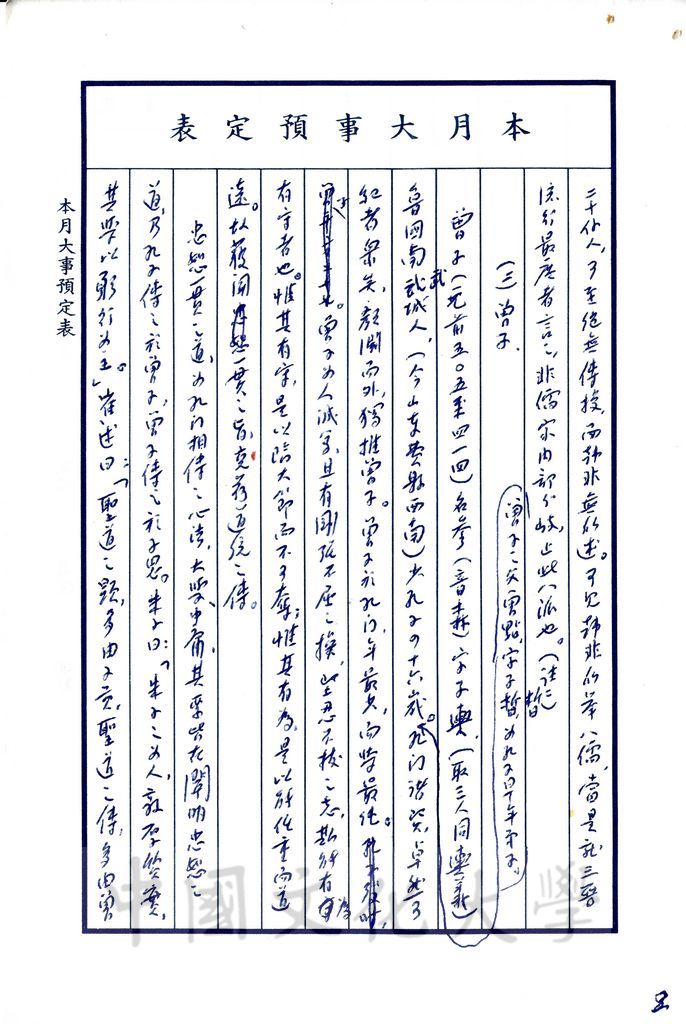 本月大事預定表
二十餘人，可至絕無傳授，而韓非無所述。可見韓非所舉八儒，當是就三晉
流行最廣者言之，非儒家內部分歧，止此八派也。（註三）
（三）曾子．
曾子之父曾點，字子晳，為孔子早年弟子。
晳
曾子（元前五〇五至四一四）名參（音森）字子輿，（取三人同輿之義）
魯國南武城人，（今山東費縣西南）少孔子四十六歲。孔門諸賢，卓然可
武
紀者眾矣，顏淵而外，獨推曾子。曾子於孔門，年最少，而學最純。
曾子為人誠篤，且有剛強不屈之操，堅忍不拔之志，斯能有為
有守者也。惟其有守，是以臨大節而不可奪；惟其有為，是以能任重而道
遠。故獲聞一貫之旨，克荷道統之傳。
忠恕一貫之道，為孔門相傳之心法，大學、中庸其要皆在闡明忠恕之
道，乃孔子傳之於曾子，曾子傳之於子思。朱子曰：「朱子之為人，敦厚質實，
其學以躬行為主。」崔述曰：「聖道之顯，多由子貢，聖道之傳，多由曾
本月大事預定表
中國文化大學